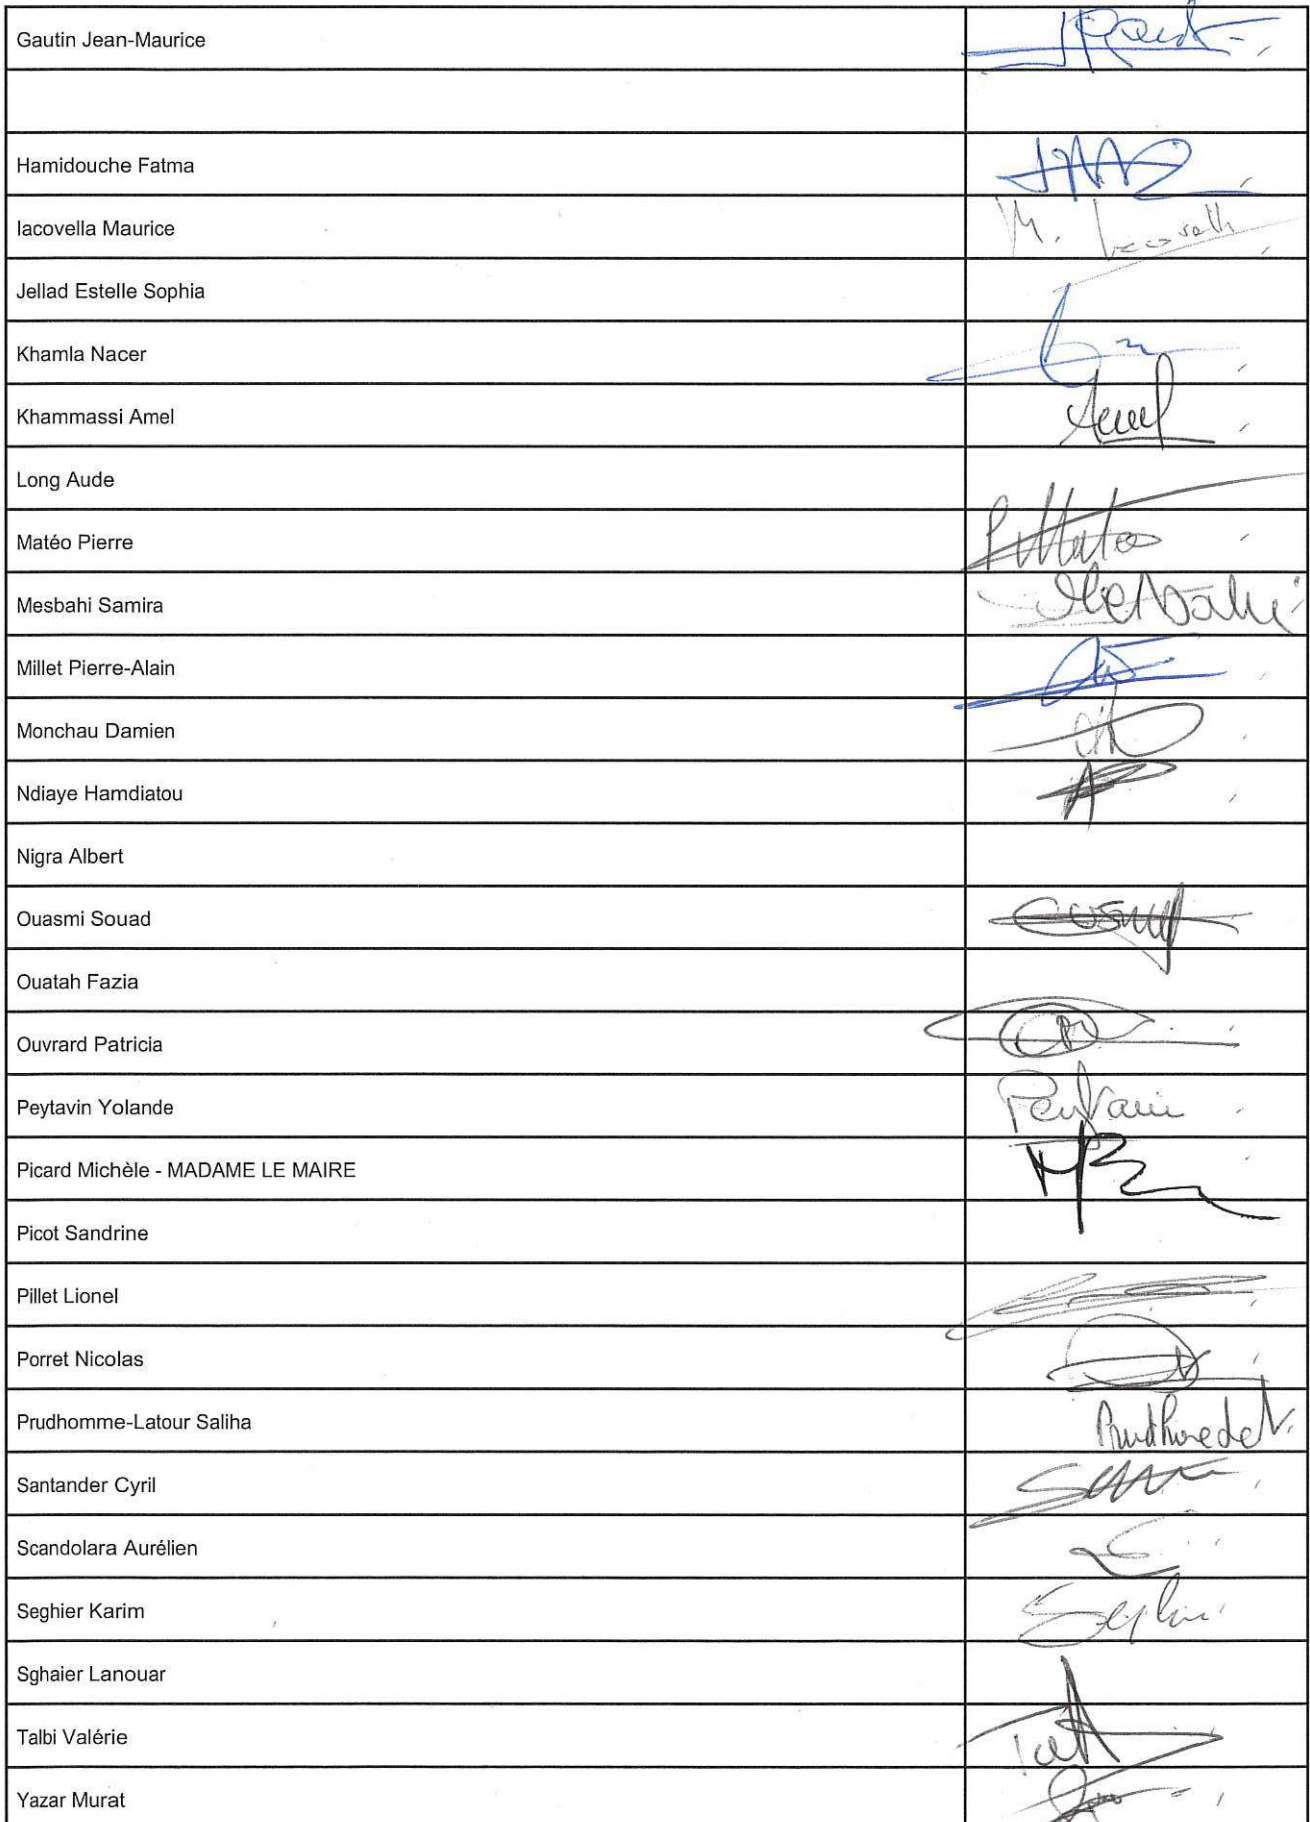 Gautin Jean-Maurice
Hamidouche Fatma
Iacovella Maurice
M. Iacovella
Jellad Estelle Sophia
Khamla Nacer
Khammassi Amel
Amel
Long Aude
Matéo Pierre
P Matéo
Mesbahi Samira
Mesbahi
Millet Pierre-Alain
Monchau Damien
Ndiaye Hamdiatou
Nigra Albert
Ouasmi Souad
Ouatah Fazia
Ouvrard Patricia
Peytavin Yolande
Peytavin
Picard Michèle - MADAME LE MAIRE
Picot Sandrine
Pillet Lionel
Porret Nicolas
Prudhomme-Latour Saliha
Santander Cyril
Scandolara Aurélien
Seghier Karim
Seghier
Sghaier Lanouar
Talbi Valérie
Yazar Murat